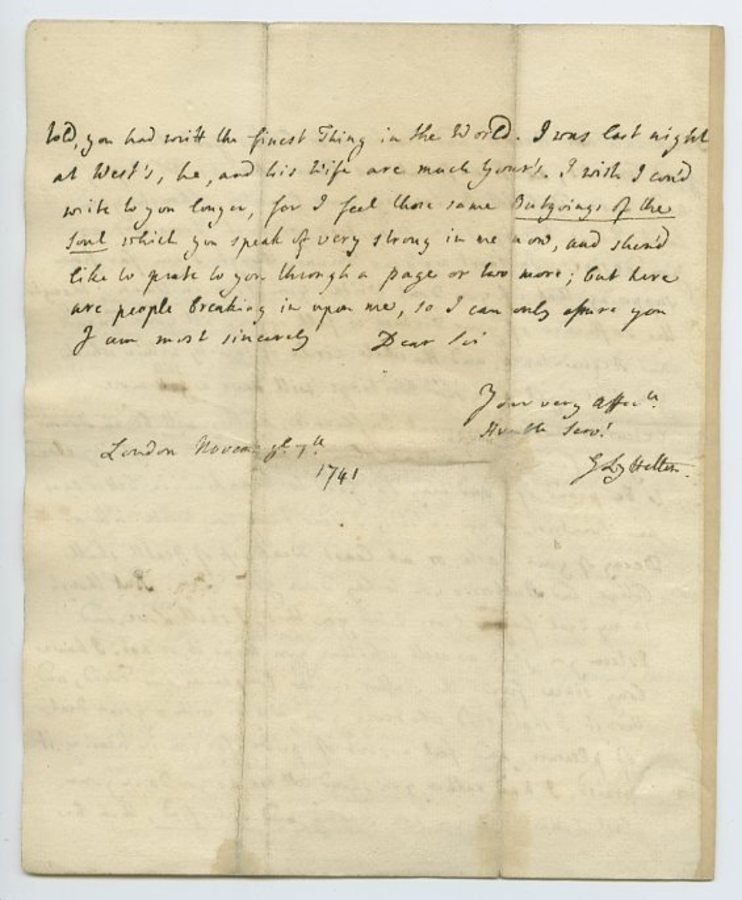 told, you had writt the finest Thing in the World. I was last night
at West's, he, and his Wife are much Your's. I wish I cou'd
write to you longer, for I feel those same Outgoings of the
Soul which you speak of very strong in me now, and shou'd
like to prate to you through a page or two more; but here
are people breaking in upon me, so I can only assure you
I am most sincerely Dear Sir
Your very Affecte.
Humble Servt.
G Lyttelton.
London Novembr. ye. 7th
1741